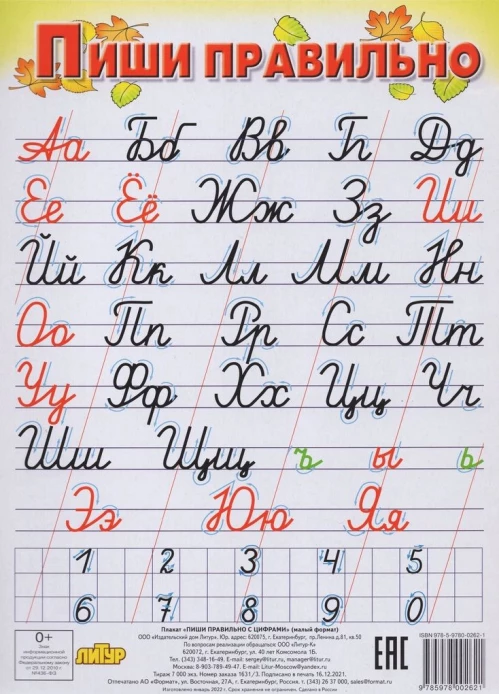 Пиши правильно
Аа Бб Вв Гг Дд
Ее Ёё Жж Зз Ии
Йй Кк Лл Мм Нн
Оо Пп Рр Сс Тт
Уу Фф Хх Цц Чч
Шш Щщ ъ ы ь
Ээ Юю Яя
1 2 3 4 5
6 7 8 9 0
0+
Знак
информационной
продукции согласно
Федеральному закону
от 29.12.2010 г.
№436-ФЗ
ЛИТУР
Плакат «ПИШИ ПРАВИЛЬНО С ЦИФРАМИ» (малый формат)
ООО «Издательский дом Литур». Юр. адрес: 620075, г. Екатеринбург, пр.Ленина д.81, кв.50
По вопросам реализации обращаться: ООО «Литур-К»
620072, г. Екатеринбург, ул. 40 лет Комсомола 1Б.
Тел. (343) 348-16-49. E-mail: sergey@litur.ru, manager@litur.ru
Москва: 8-903-789-49-47. E-mail: Litur Moscow@yandex.ru
Тираж 7 000 экз. Номер заказа 1631/3. Подписано в печать 16.12.2021.
Отпечатано АО «Формат», ул. Восточная, 27А, г. Екатеринбург, Россия. т. (343) 26 37 000, sales@format.ru
Изготовлено январь 2022 г. Срок хранения не ограничен. Сделано в России
EAC
ISBN 978-5-9780-0262-1
9 785978 002621